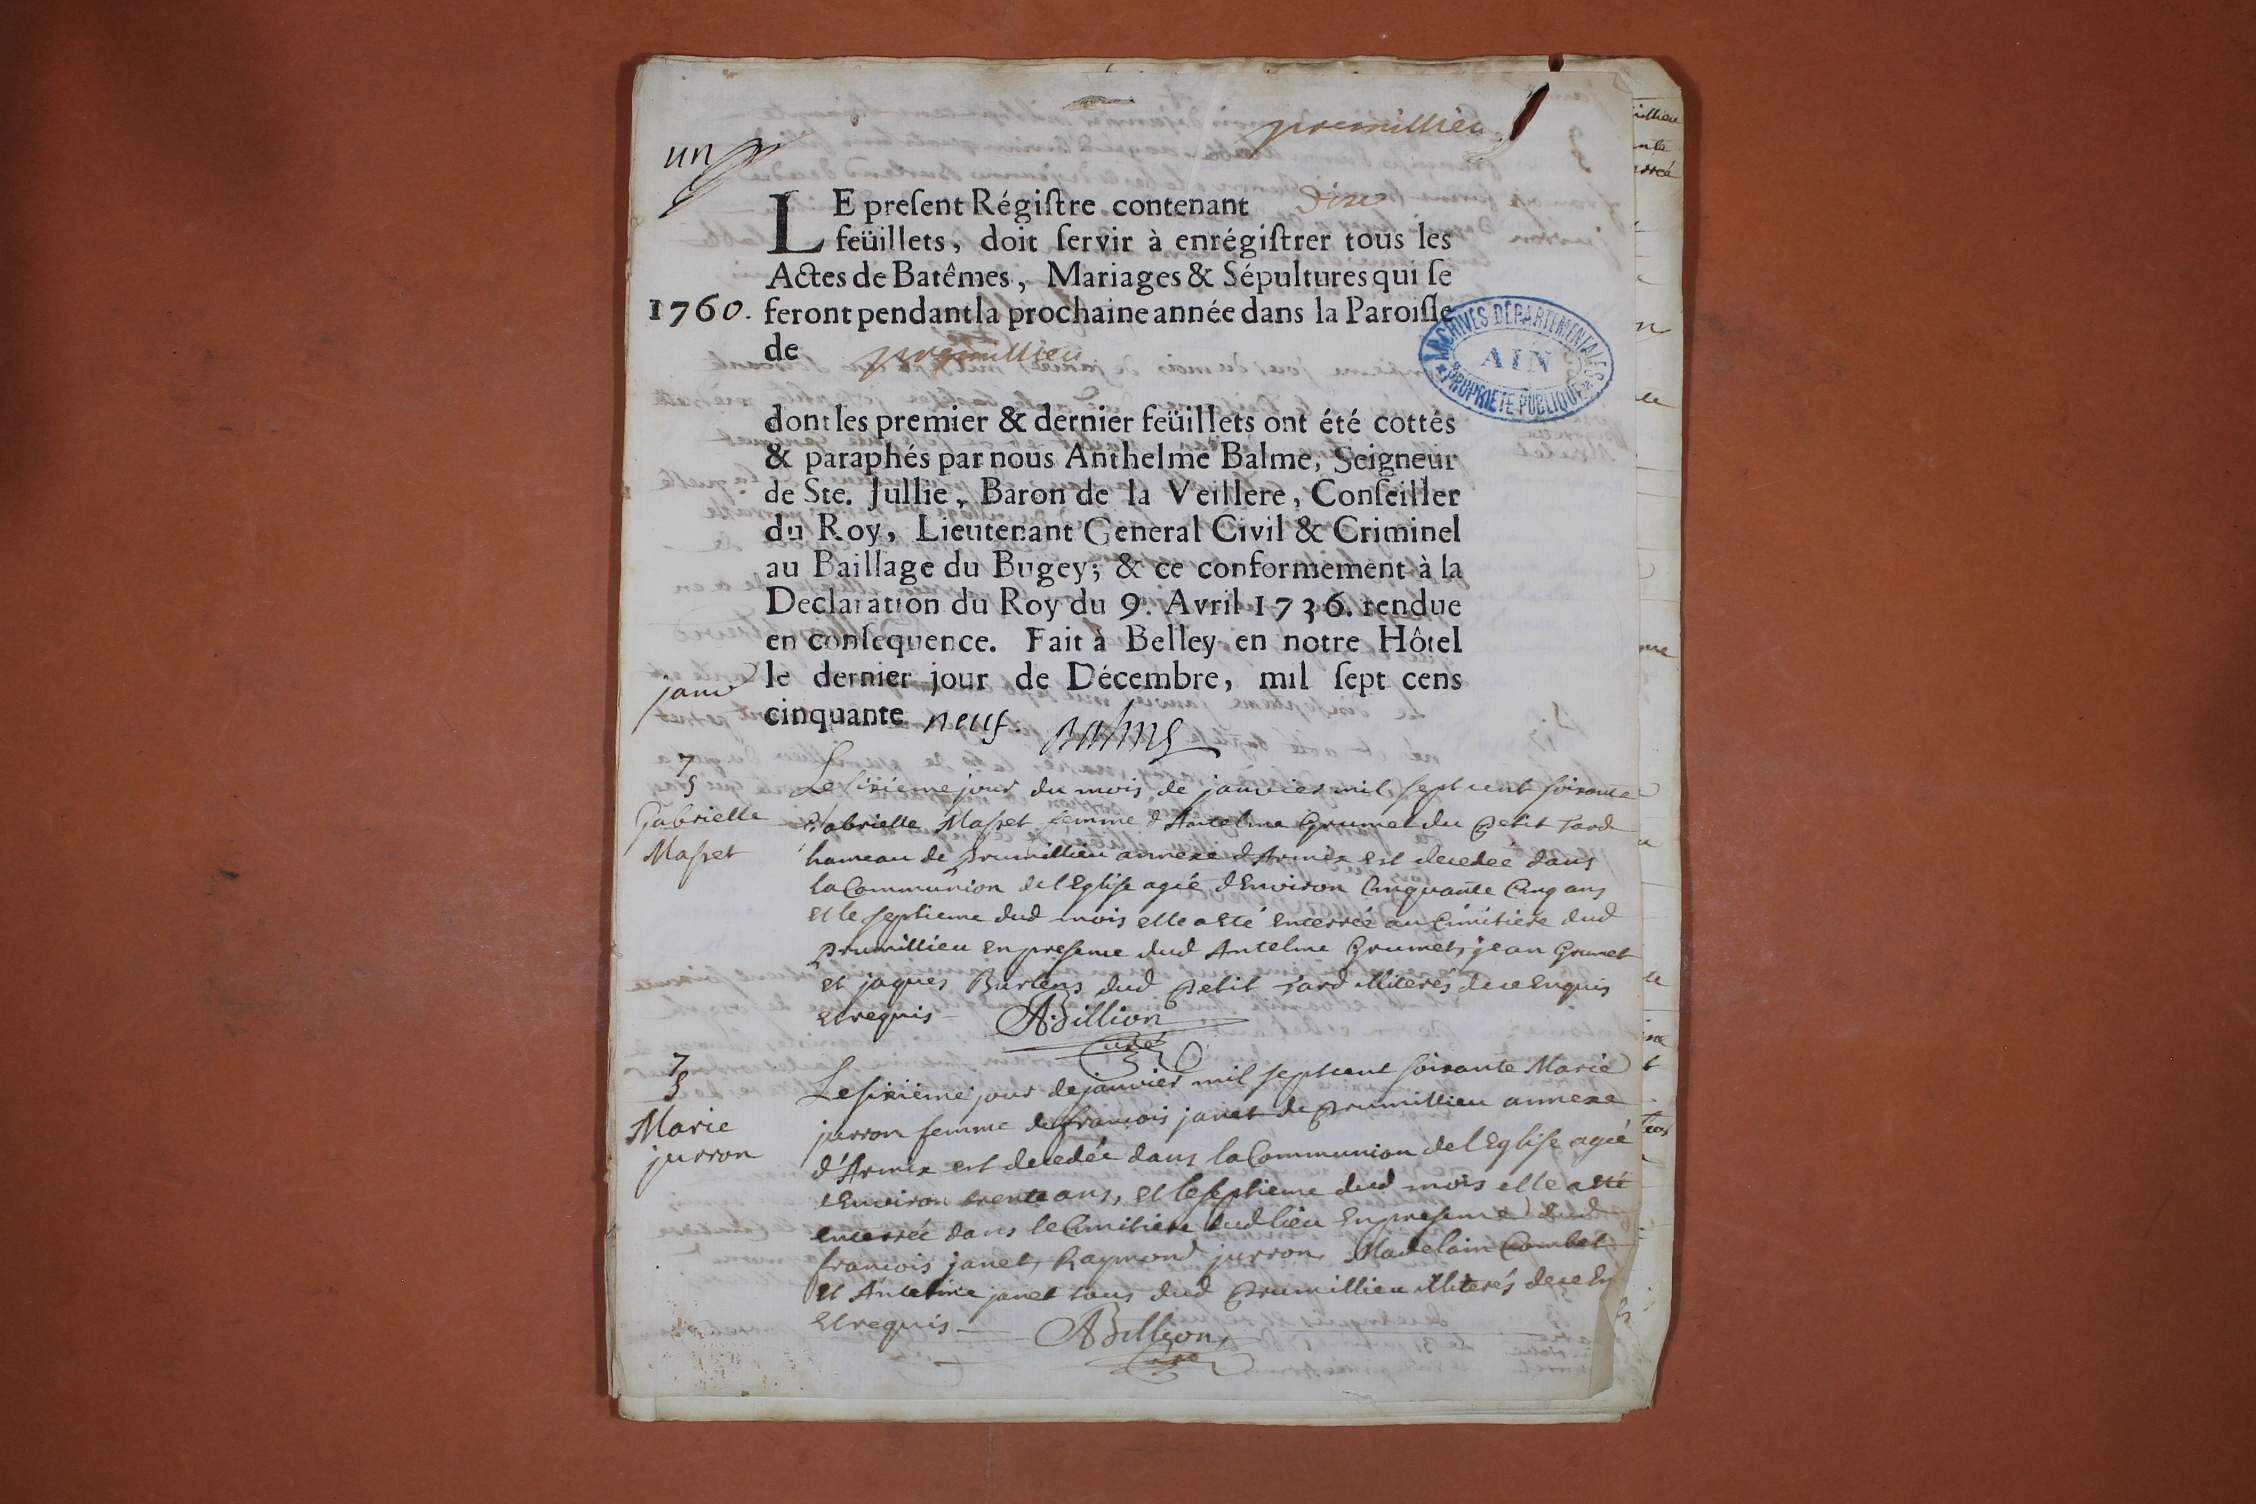 premillieu
un
LE presẽnt Régiſtre contenant dix
feüillets, doit ſervir à enrégiſtrer tous les
Actes de Batêmes, Mariages & Sépultures qui ſe
1760. feront pendant la prochaine année dans la Paroiſſe
de premillieu
ARCHIVES DÉPARTEMENTALES
AIN
PROPRIÉTÉ PUBLIQUE
dont les premier & dernier feüillets ont été cottés
& paraphés par nous Anthelme Balme, Seigneur
de Ste. Jullie, Baron de la Veillere, Conſeiller
du Roy, Lieutenant General Civil & Criminel
au Baillage du Bugey; & ce conformement à la
Declaration du Roy du 9. Avril 1736. rendue
en conſequence. Fait à Belley en notre Hôtel
le dernier jour de Décembre, mil ſept cens
cinquante neuf. Balme
janv
7
S
Gabrielle
Masset
Le sixiéme jour du mois de janvier mil sept cent soixante
Gabrielle Masset femme d'Antelme Grumet du Petit Tard
hameau de prumillieu annexe d'Armix est decedeé dans
la Communion de l'Eglise ageé d'Environ Cinquante Cinq ans
et le septieme dud mois elle a Eté Enterrée au Cimitiere dud
prumillieu en presence dud Antelme Grumet, jean Grumet
et jaques Burlens dud Petit Tard illiterés de ce Enquis
et requis A. Billion
curé
7
S
Marie
jurron
Le sixiéme jour de janvier mil sept cent soixante Marie
jurron femme de francois janet de Prumillieu annexe
d'Armix est decedée dans la Communion de l'Eglise ageé
d'Environ trente ans, et le septieme dud mois elle a eté
Enterrée dans le Cimitiere dud lieu En presence dud
francois janet, Raymond jurron, Madelain Combet
et Antelme janet tous dud Prumillieu illiterés de ce En
et requis A Billion
curé